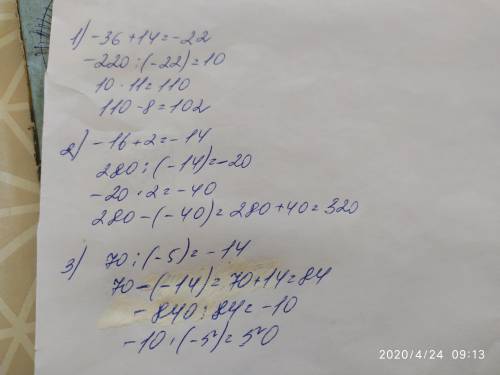 1) -36+14=-22
-220:(-22)=10
10·11=110
110-8=102
2) -16+2=-14
280:(-14)=-20
-20·2=-40
280-(-40)=280+40=320
3) 70:(-5)=-14
70-(-14)=70+14=84
-840:84=-10
-10·(-5)=50
2020/4/24 09:13